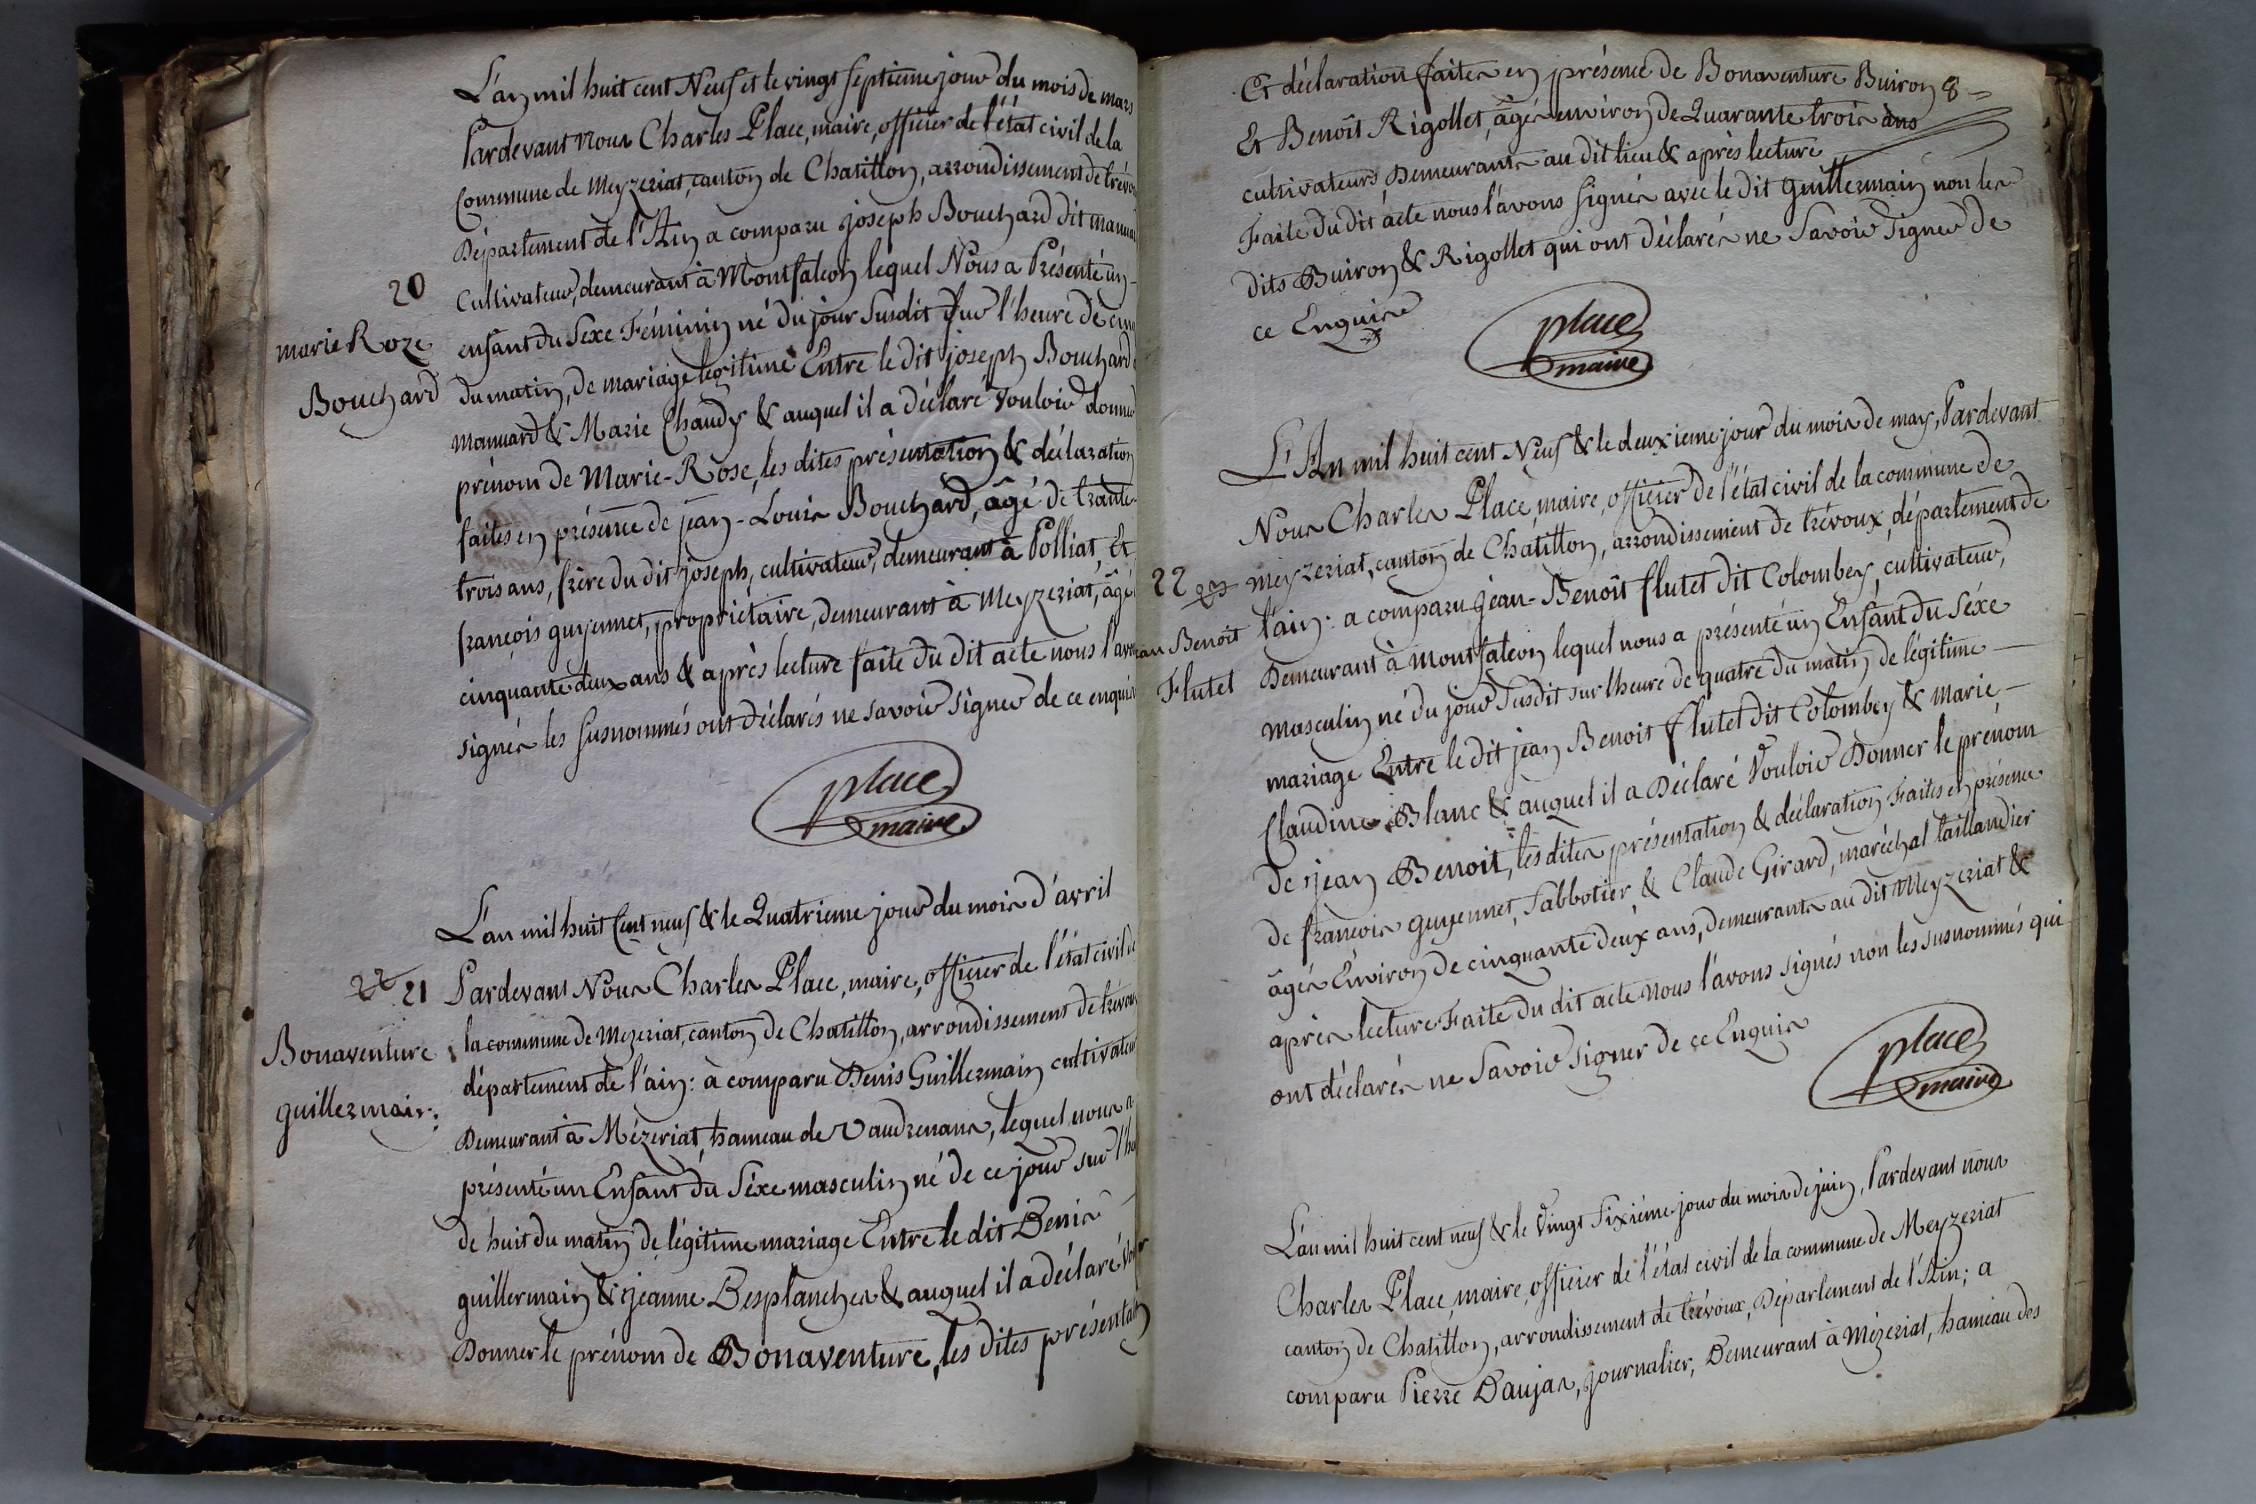 L'an mil huit cent Neuf et le vingt septieme jour du mois de mars
Pardevant nous Charles Place, maire, officier de l'état civil de la
Commune de Meyzeriat, canton de Chatillon, arrondissement de trévou
Département de l'Ain a comparu joseph Bouchard dit manua
20
Cultivateur, demeurant à Montfalcon lequel Nous a Présenté un
marie Roze
enfant du Sexe Féminin né du jour susdit sur l'heure de cinq
Bouchard
du matin, de mariage legitime Entre le dit joseph Bouchard d
manuard & Marie Chaudy & auquel il a déclaré vouloir donner
prénom de Marie-Rose, les dites présentation & déclaration
faites en présence de jean-Louis Bouchard, âgé de trante-
trois ans, frère du dit joseph, cultivateur, demeurant à Polliat, Et
françois guyennet, propriétaire, demeurant à Meyzeriat, âgé
cinquante deux ans & après lecture faite du dit acte nous l'avo
signés les susnommés ont déclarés ne savoir signer de ce enquis
place
maire
L'an mil huit Cent neuf & le Quatrieme jour du mois d'avril
22 21
Pardevant Nous Charles Place, maire, officier de l'état civil de
Bonaventure
la commune de Mezeriat, canton de Chatillon, arrondissement de trévou
guillermain
département de l'ain: à comparu Denis Guillermain cultivateur
Demeurant à Mézeriat, hameau de Vaudrenans, lequel nous a
présenté un Enfant du Séxe masculin né de ce jour sur l'he
de huit du matin de légitime mariage Entre le dit Denis
guillermain & jeanne Desplanches & auquel il a déclaré vo
Donner le prénom de Bonaventure, les dites présentation
Et déclaration faites en présence de Bonaventure Buiron &
Et Benoît Rigollet, âgés environ de Quarante trois ans
cultivateurs, Demeurants au dit lieu & après lecture
Faite du dit acte nous l'avons signés avec le dit guillermain non les
dits Buiron & Rigollet qui ont déclarés ne Savoir Signer de
ce Enquis
place
maire
L'An mil huit cent Neuf & le deuxieme jour du mois de may, Pardevant
Nous Charles Place, maire, officier de l'état civil de la commune de
22
meyzeriat, canton de Chatillon, arrondissement de trévoux, département de
ean Benoit
l'ain: a comparu jean-Benoît flutet dit Colombey, cultivateur,
Flutet
Demeurant à Montfalcon lequel nous a présenté un Enfant du Séxe
masculin né du jour susdit sur l'heure de quatre du matin de légitime
mariage Entre le dit jean Benoit flutet dit Colombey & Marie
Claudine Blanc & auquel il a Déclaré Vouloir Donner le prénom
de jean Benoit, les dites présentation & déclaration Faites en présence
de françois guyennet, Sabbotier, & Claude Girard, maréchal taillandier
âgés Environ de cinquante deux ans, demeurants au dit Meyzeriat &
après lecture Faite du dit acte nous l'avons signés non les susnommés qui
ont déclarés ne Savoir Signer de ce Enquis
place
maire
L'an mil huit cent neuf & le Vingt Sixiéme jour du mois de juin, Pardevant nous
Charles Place, maire, officier de l'état civil de la commune de Meyzeriat
canton de Chatillon, arrondissement de trévoux, Département de l'Ain; a
comparu Pierre Daujas, journalier, Demeurant à Mézeriat, hameau des